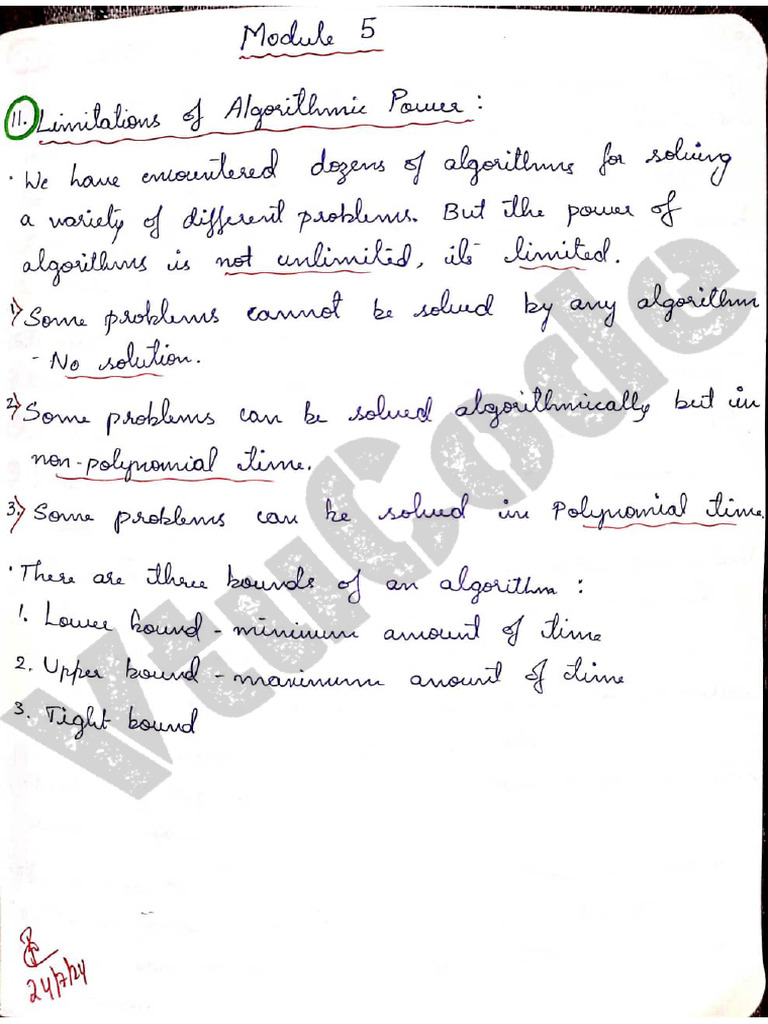 Module 5
11. Limitations of Algorithmic Power :
· We have encountered dozens of algorithms for solving
a variety of different problems. But the power of
algorithms is not unlimited, its limited.
1) Some problems cannot be solved by any algorithm
- No solution.
2) Some problems can be solved algorithmically but in
non-polynomial time.
3) Some problems can be solved in Polynomial time.
· There are three bounds of an algorithm :
1. Lower bound - minimum amount of time
2. Upper bound - maximum amount of time
3. Tight bound
VtuCode
24/7/24